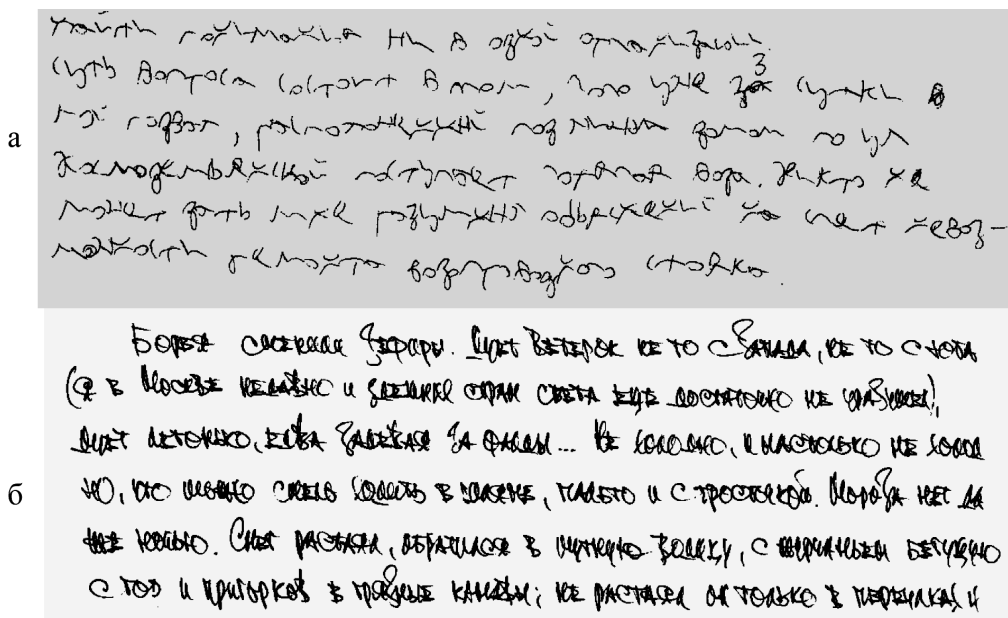 а
найти ни в одной организации.
Суть вопроса состоит в том, что уже 3 сутки в
подвал, расположенный под нашим домом по ул
поступает горячая вода. Никто не
может дать мне объяснений невоз-
можность ремонта стояка.
б
Борея сменили зефиры. Дует ветерок не то с запада, не то с юга
(я в Москве недавно и здешних стран света еще достаточно не уразумел),
дует легонько, едва задевая за фалды... Не холодно, и настолько не холод
но, что можно смело ходить в шляпе, пальто и с тросточкой. Мороза нет да
же ночью. Снег растаял, обратился в мутную водицу, с журчаньем бегущую
с гор и пригорков в грязные канавы; не растаял он только в переулках и